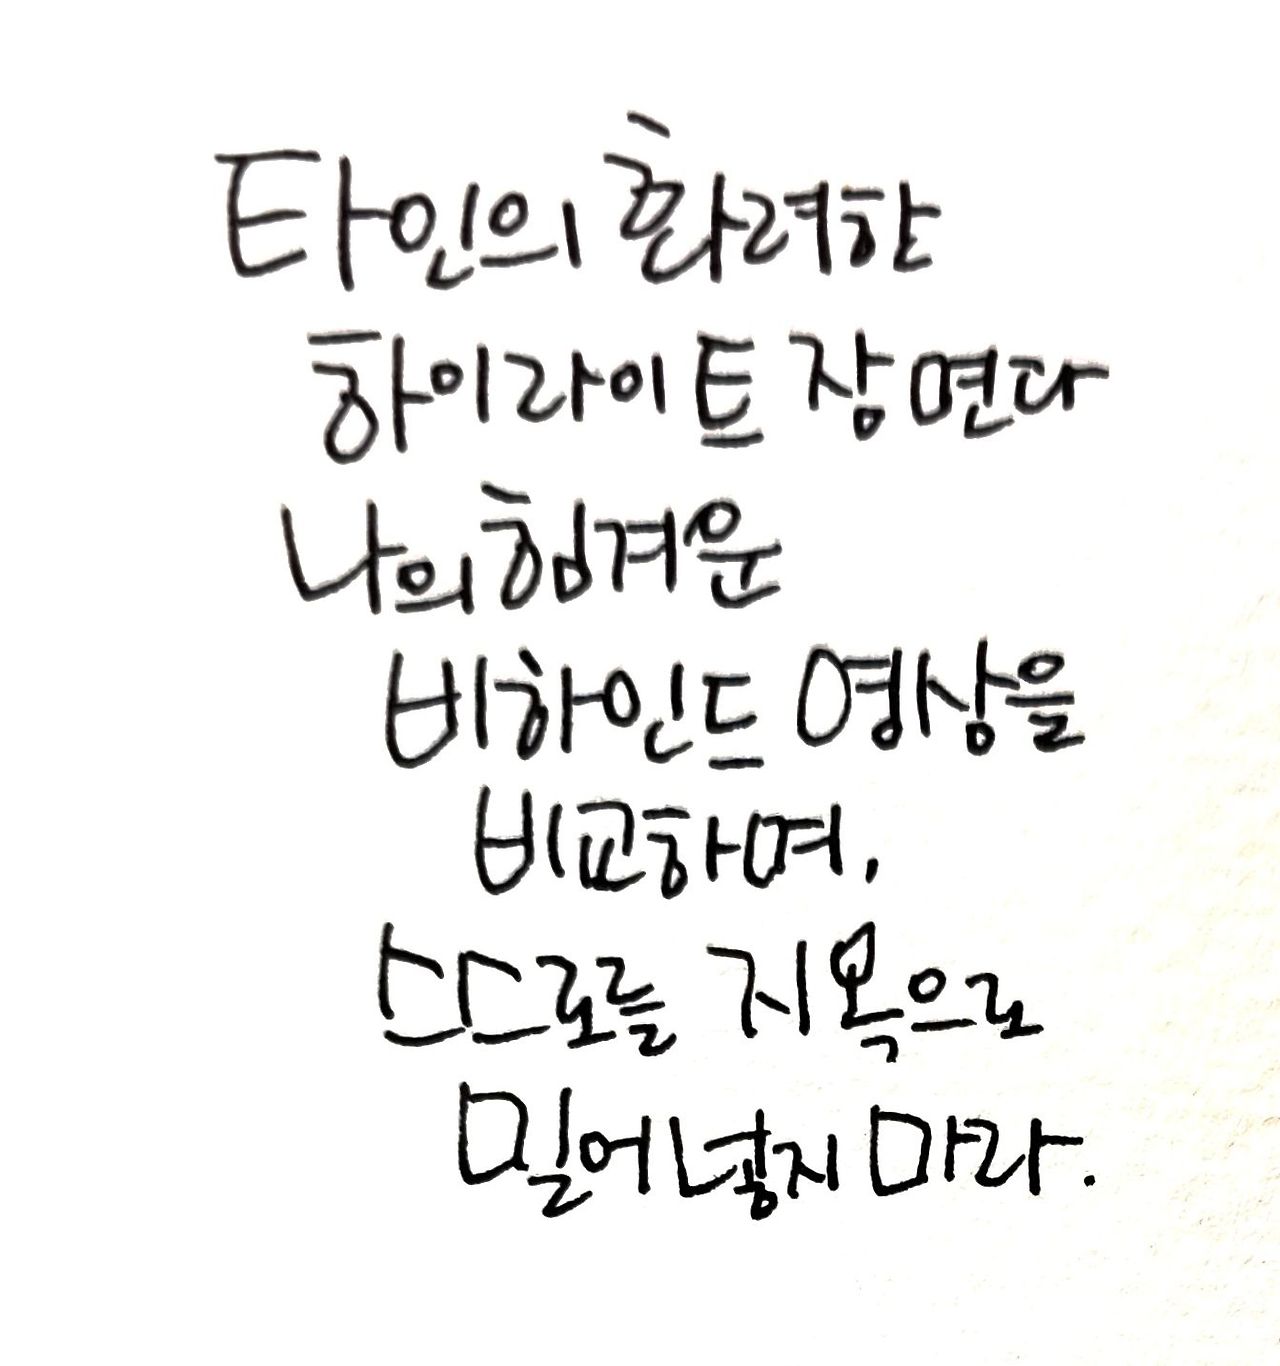 타인의 화려한
하이라이트 장면다
나의 힘겨운
비하인드 영상을
비교하며,
스스로를 지옥으로
밀어 넣지 마라.